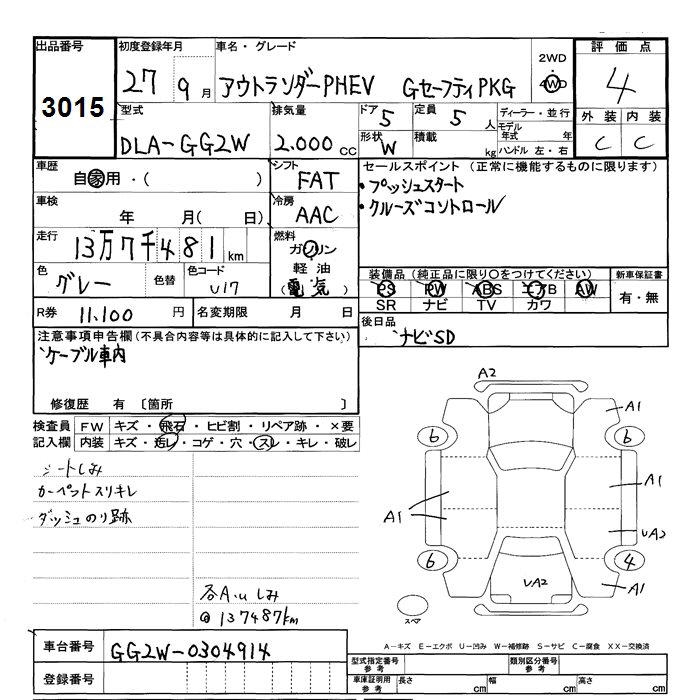 出品番号 初度登録年月 車名・グレード 2WD 評価点
3015 27 9月 アウトランダーPHEV GセーフティPKG 4WD 4
型式 排気量 ドア 定員 ディーラー・並行 外装 内装
DLA-GG2W 2.000cc 5 5人 モデル年式 年 C C
形状 W 積載 kg ハンドル 左・右
車歴 シフト セールスポイント(正常に機能するものに限ります)
自家用・( ) FAT ・プッシュスタート
車検 冷房 ・クルーズコントロール
年 月( 日) AAC
走行 燃料
13万7千481km ガソリン
軽油
(電気)
色 色替 色コード 装備品(純正品に限り○をつけてください) 新車保証書
グレー U17 PS PW ABS エアB AW 有・無
SR ナビ TV カワ
R券 11.100円 名変期限 月 日 後日品
ナビSD
注意事項申告欄(不具合内容等は具体的に記入して下さい)
ケーブル車内
修復歴 有 〔箇所 〕
検査員記入欄 FW キズ・飛石・ヒビ割・リペア跡・×要
内装 キズ・汚レ・コゲ・穴・スレ・キレ・破レ
シートしみ
カーペットスリキレ
ダッシュのり跡
各A.uしみ
@137487km
A2
A1
6 6
A1
A1
UA2
6 4
UA2
A1
スペア
A-キズ E-エクボ U-凹み W-補修跡 S-サビ C-腐食 XX-交換済
車台番号 GG2W-0304914
登録番号
型式指定番号 参考 類別区分番号 参考
車庫証明用 参考 長さ cm 幅 cm 高さ cm